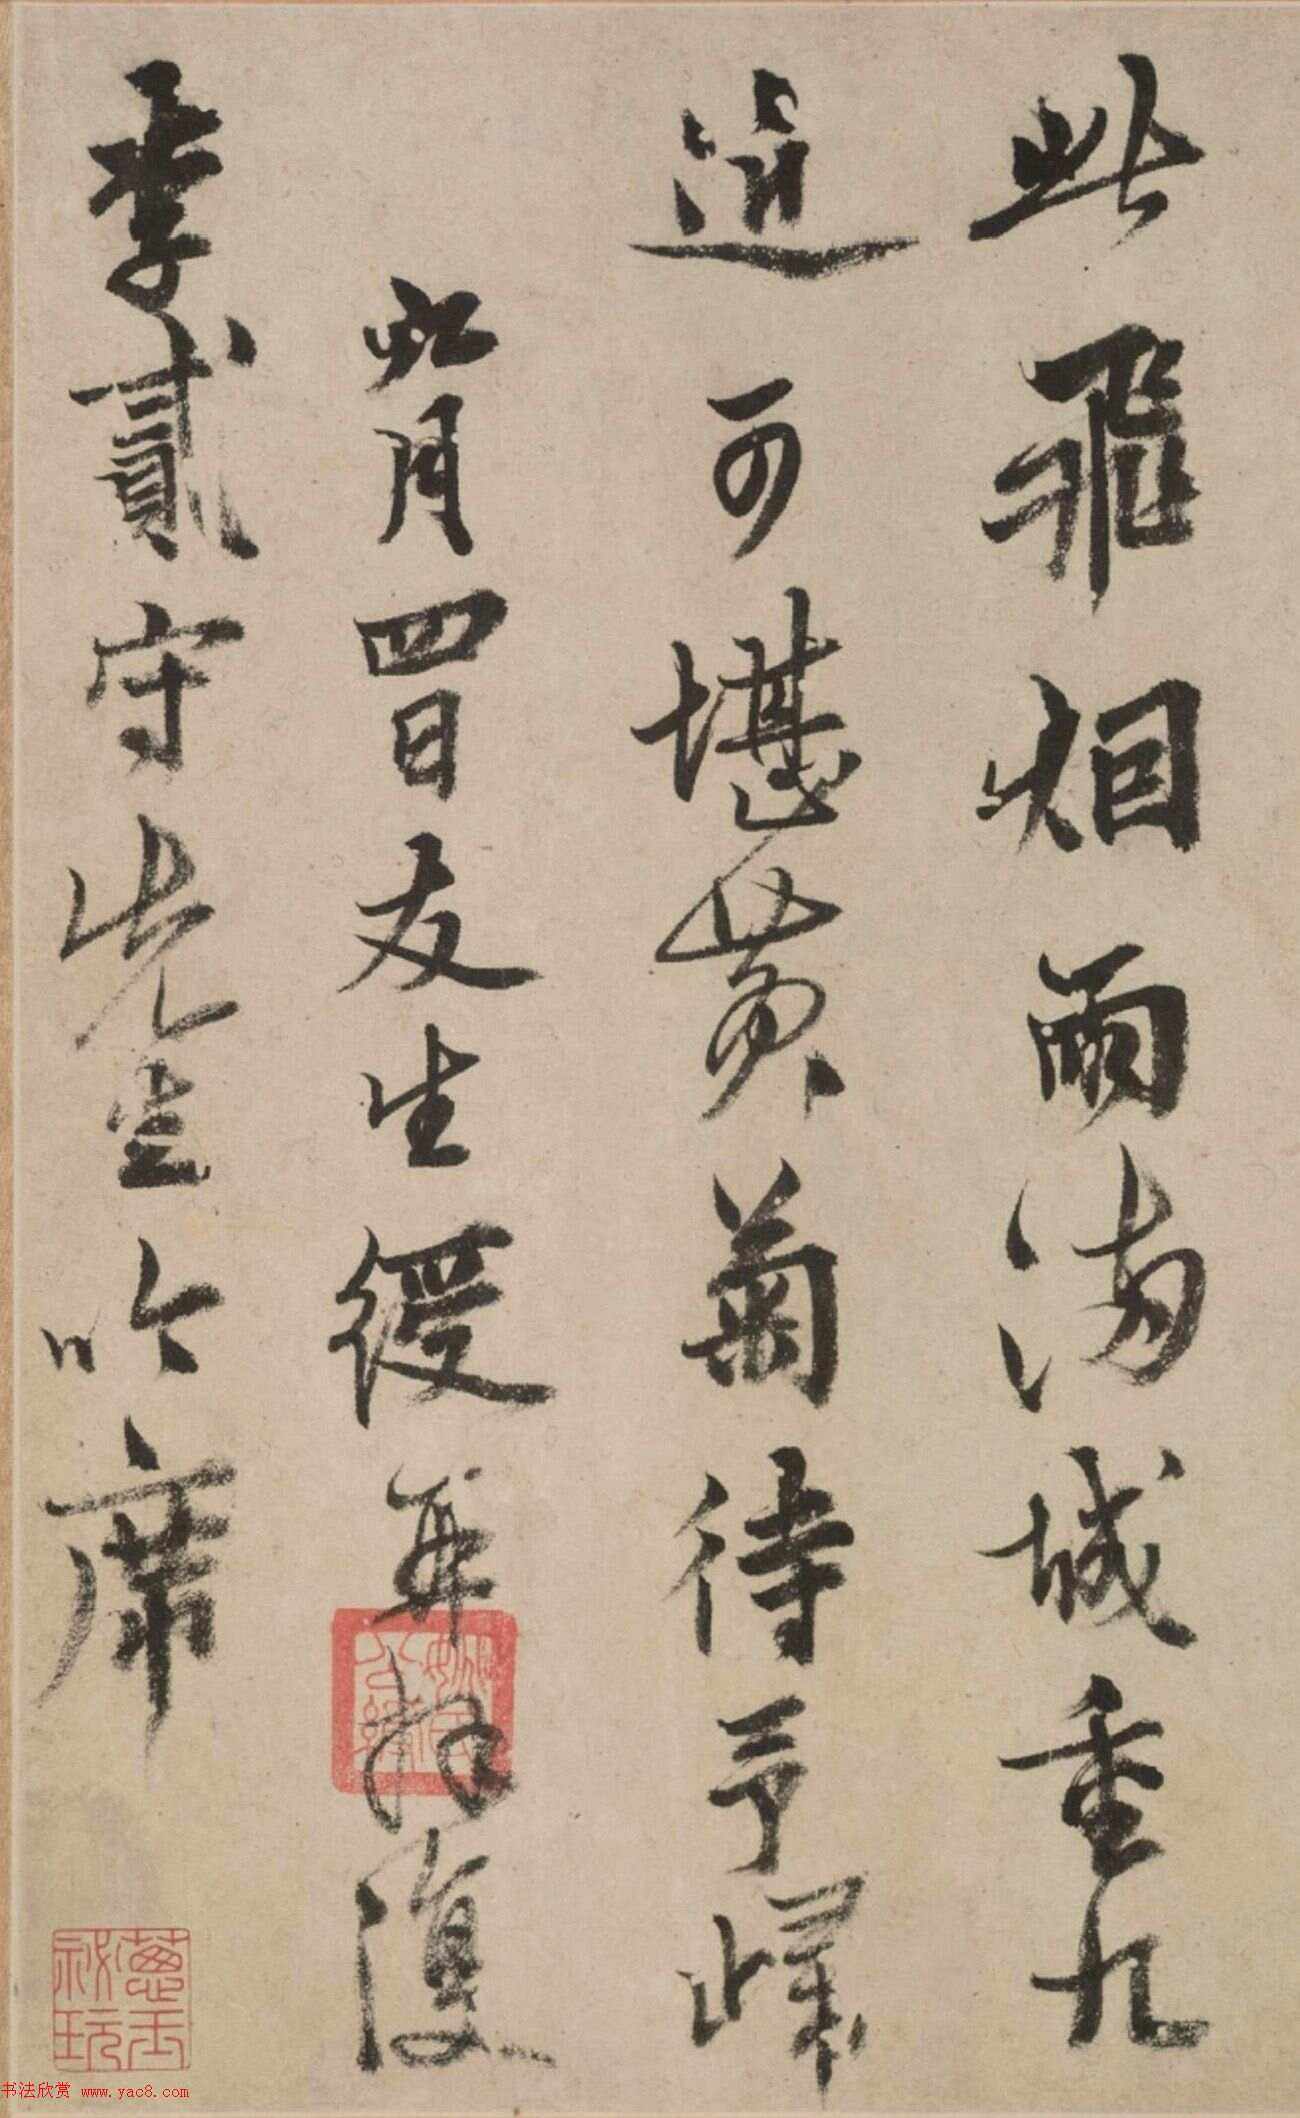 此飛烟雨满城重九
近可堪黄菊待予歸
如月四日友生绶再拜復
李貳守先生吟席
書法欣赏 www.yac8.com